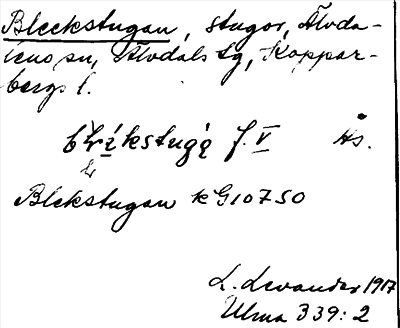 Bleckstugan, stugor, Älvda-
lens sn, Älvdals tg, Koppar-
bergs l.
f. V Hs.
Bleckstugan K G10750
L. Levander 1917
Ulma 339:2